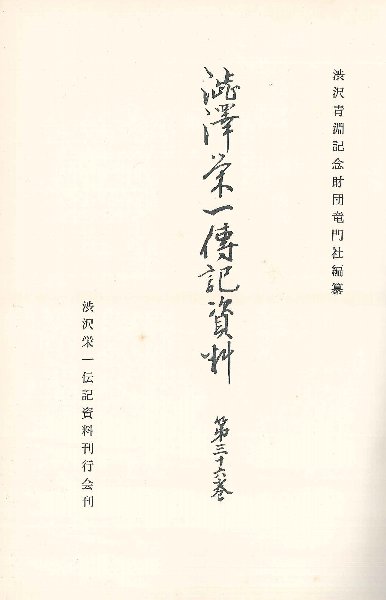 渋沢青淵記念財団竜門社編纂
澁澤栄一傳記資料 第三十六巻
渋沢栄一伝記資料刊行会刊